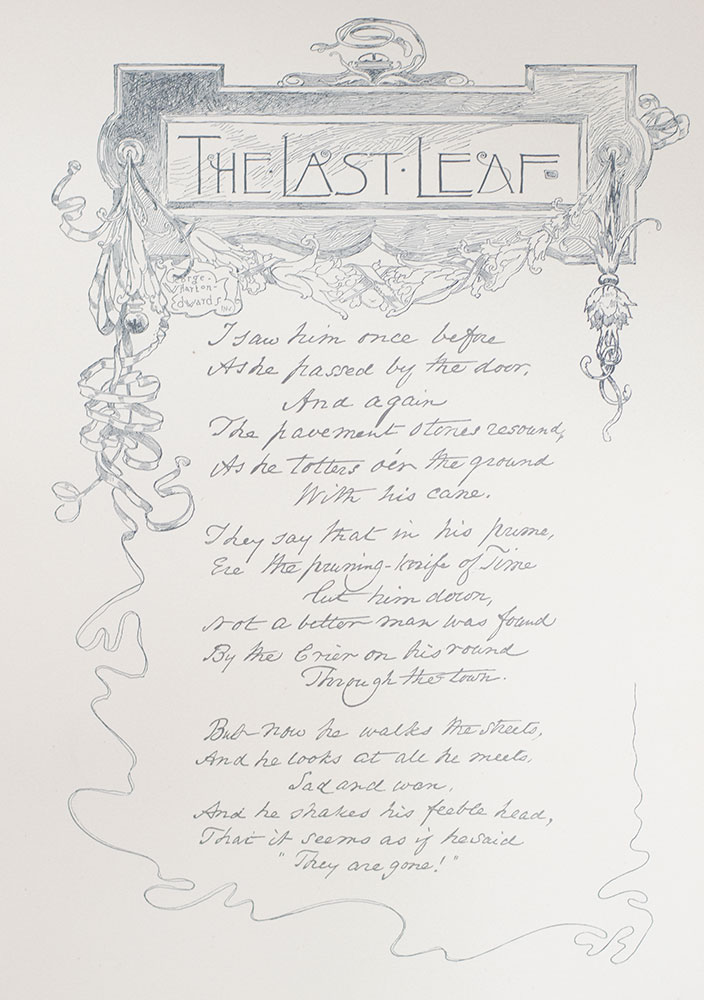 THE · LAST · LEAF
George
Wharton
Edwards
I saw him once before
As he passed by the door,
And again
The pavement stones resound,
As he totters o'er the ground
With his cane.
They say that in his prime,
Ere the pruning-knife of Time
Cut him down,
Not a better man was found
By the Crier on his round
Through the town.
But now he walks the streets,
And he looks at all he meets,
Sad and wan,
And he shakes his feeble head,
That it seems as if he said
"They are gone!"